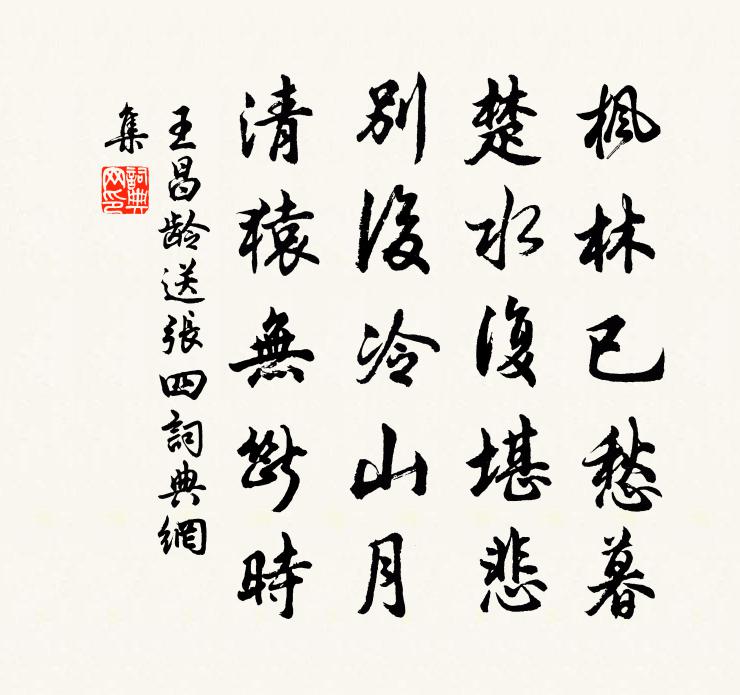 枫林已愁暮
楚水復堪悲
别後冷山月
清猿無斷時
王昌龄送張四詞典網
集
詞典
网印